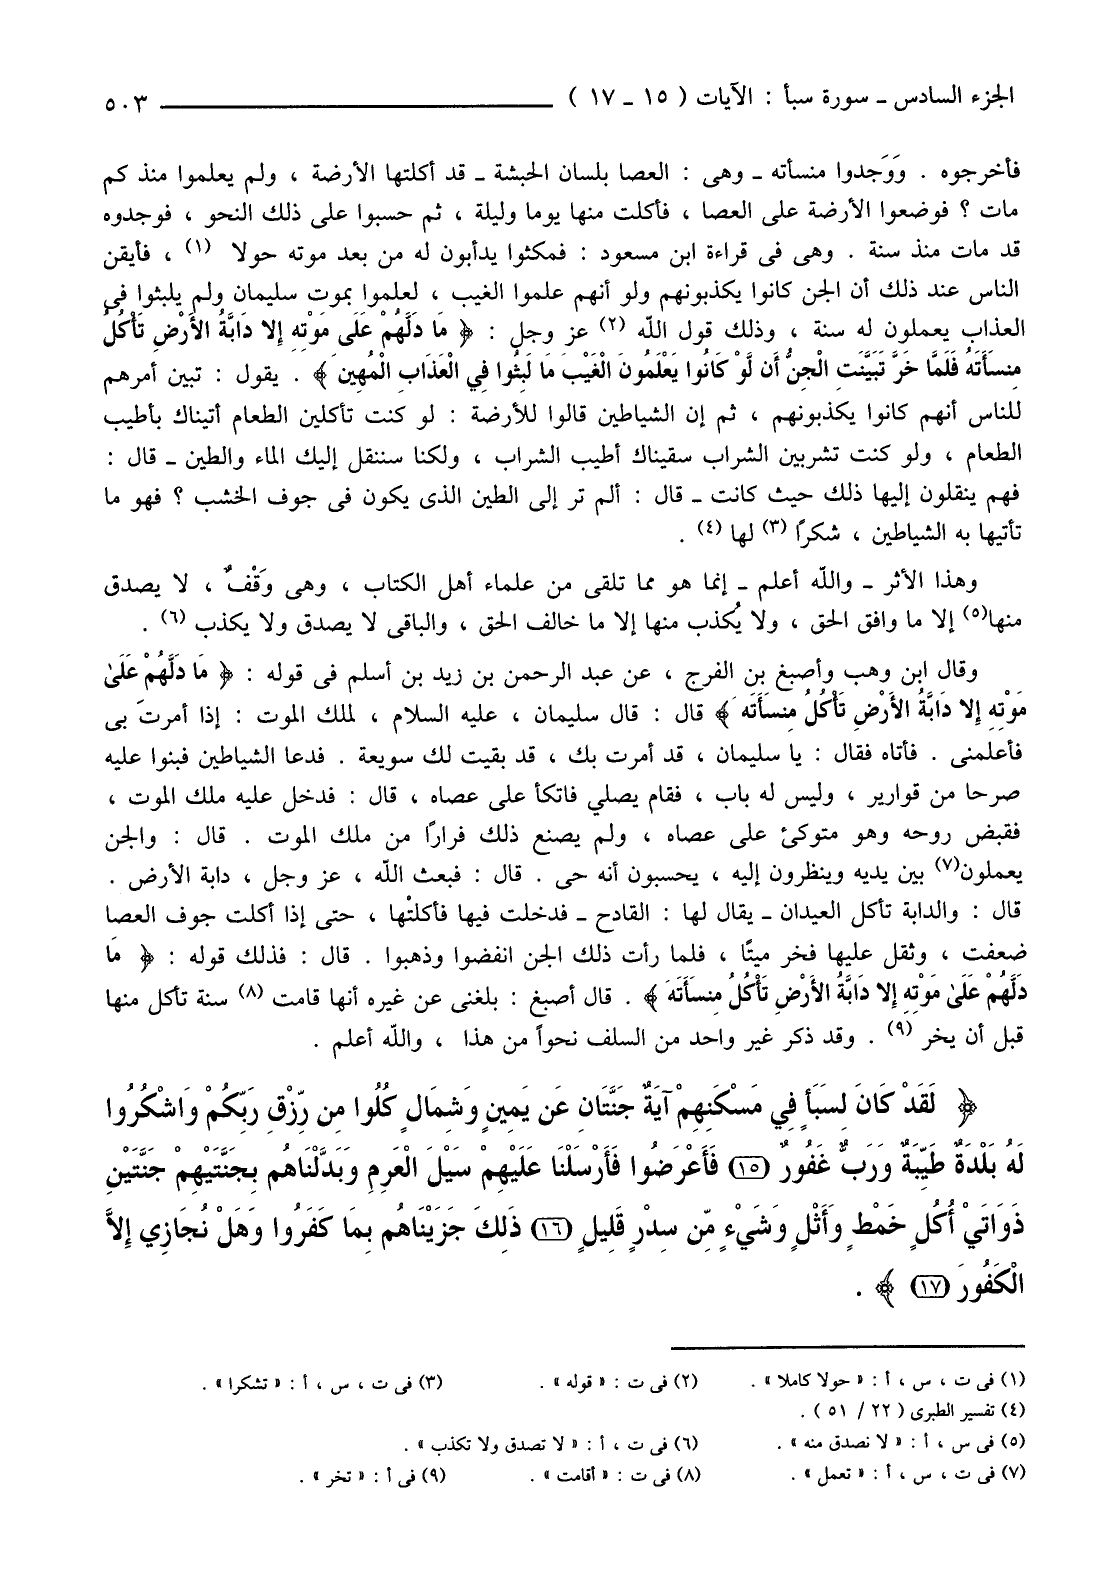 الجزء السادس ـ سورة سبأ : الآيات ( ١٥ ـ ١٧ ) ٥٠٣
فأخرجوه . وَوَجدوا منسأته ـ وهى : العصا بلسان الحبشة ـ قد أكلتها الأرضة ، ولم يعلموا منذ كم
مات ؟ فوضعوا الأرضة على العصا ، فأكلت منها يوما وليلة ، ثم حسبوا على ذلك النحو ، فوجدوه
قد مات منذ سنة . وهى فى قراءة ابن مسعود : فمكثوا يدأبون له من بعد موته حولا (١) ، فأيقن
الناس عند ذلك أن الجن كانوا يكذبونهم ولو أنهم علموا الغيب ، لعلموا بموت سليمان ولم يلبثوا فى
العذاب يعملون له سنة ، وذلك قول الله (٢) عز وجل : ﴿ مَا دَلَّهُمْ عَلَى مَوْتِهِ إِلا دَابَّةُ الأَرْضِ تَأْكُلُ
مِنسَأَتَهُ فَلَمَّا خَرَّ تَبَيَّنَتِ الْجِنُّ أَن لَّوْ كَانُوا يَعْلَمُونَ الْغَيْبَ مَا لَبِثُوا فِي الْعَذَابِ الْمُهِينِ ﴾ . يقول : تبين أمرهم
للناس أنهم كانوا يكذبونهم ، ثم إن الشياطين قالوا للأرضة : لو كنت تأكلين الطعام أتيناك بأطيب
الطعام ، ولو كنت تشربين الشراب سقيناك أطيب الشراب ، ولكنا سننقل إليك الماء والطين ـ قال :
فهم ينقلون إليها ذلك حيث كانت ـ قال : ألم تر إلى الطين الذى يكون فى جوف الخشب ؟ فهو ما
تأتيها به الشياطين ، شكرًا (٣) لها (٤) .
وهذا الأثر ـ والله أعلم ـ إنما هو مما تلقى من علماء أهل الكتاب ، وهى وَقْفٌ ، لا يصدق
منها(٥) إلا ما وافق الحق ، ولا يُكذب منها إلا ما خالف الحق ، والباقى لا يصدق ولا يكذب (٦) .
وقال ابن وهب وأصبغ بن الفرج ، عن عبد الرحمن بن زيد بن أسلم فى قوله : ﴿ مَا دَلَّهُمْ عَلَىٰ
مَوْتِهِ إِلا دَابَّةُ الأَرْضِ تَأْكُلُ مِنسَأَتَه ﴾ قال : قال سليمان ، عليه السلام ، لملك الموت : إذا أمرتَ بى
فأعلمنى . فأتاه فقال : يا سليمان ، قد أمرت بك ، قد بقيت لك سويعة . فدعا الشياطين فبنوا عليه
صرحا من قوارير ، وليس له باب ، فقام يصلي فاتكأ على عصاه ، قال : فدخل عليه ملك الموت ،
فقبض روحه وهو متوكئ على عصاه ، ولم يصنع ذلك فرارًا من ملك الموت . قال : والجن
يعملون(٧) بين يديه وينظرون إليه ، يحسبون أنه حى . قال : فبعث الله ، عز وجل ، دابة الأرض .
قال : والدابة تأكل العيدان ـ يقال لها : القادح ـ فدخلت فيها فأكلتْها ، حتى إذا أكلت جوف العصا
ضعفت ، وثقل عليها فخر ميتًا ، فلما رأت ذلك الجن انفضوا وذهبوا . قال : فذلك قوله : ﴿ مَا
دَلَّهُمْ عَلَىٰ مَوْتِهِ إِلا دَابَّةُ الأَرْضِ تَأْكُلُ مِنسَأَتَه ﴾ . قال أصبغ : بلغنى عن غيره أنها قامت (٨) سنة تأكل منها
قبل أن يخر (٩) . وقد ذكر غير واحد من السلف نحواً من هذا ، والله أعلم .
﴿ لَقَدْ كَانَ لِسَبَأٍ فِي مَسْكَنِهِمْ آيَةٌ جَنَّتَانِ عَن يَمِينٍ وَشِمَالٍ كُلُوا مِن رِّزْقِ رَبِّكُمْ وَاشْكُرُوا
لَهُ بَلْدَةٌ طَيِّبَةٌ وَرَبٌّ غَفُورٌ (١٥) فَأَعْرَضُوا فَأَرْسَلْنَا عَلَيْهِمْ سَيْلَ الْعَرِمِ وَبَدَّلْنَاهُم بِجَنَّتَيْهِمْ جَنَّتَيْنِ
ذَوَاتَيْ أُكُلٍ خَمْطٍ وَأَثْلٍ وَشَيْءٍ مِّن سِدْرٍ قَلِيلٍ (١٦) ذَلِكَ جَزَيْنَاهُم بِمَا كَفَرُوا وَهَلْ نُجَازِي إِلاَّ
الْكَفُورَ (١٧) ﴾ .
(١) فى ت ، س ، أ : « حولا كاملا » . (٢) فى ت : « قوله » . (٣) فى ت ، س ، أ : « تشكرا » .
(٤) تفسير الطبرى ( ٢٢ / ٥١ ) .
(٥) فى س ، أ : « لا نصدق منه » . (٦) فى ت ، أ : « لا تصدق ولا تكذب » .
(٧) فى ت ، س ، أ : « تعمل » . (٨) فى ت : « أقامت » . (٩) فى أ : « تخر » .